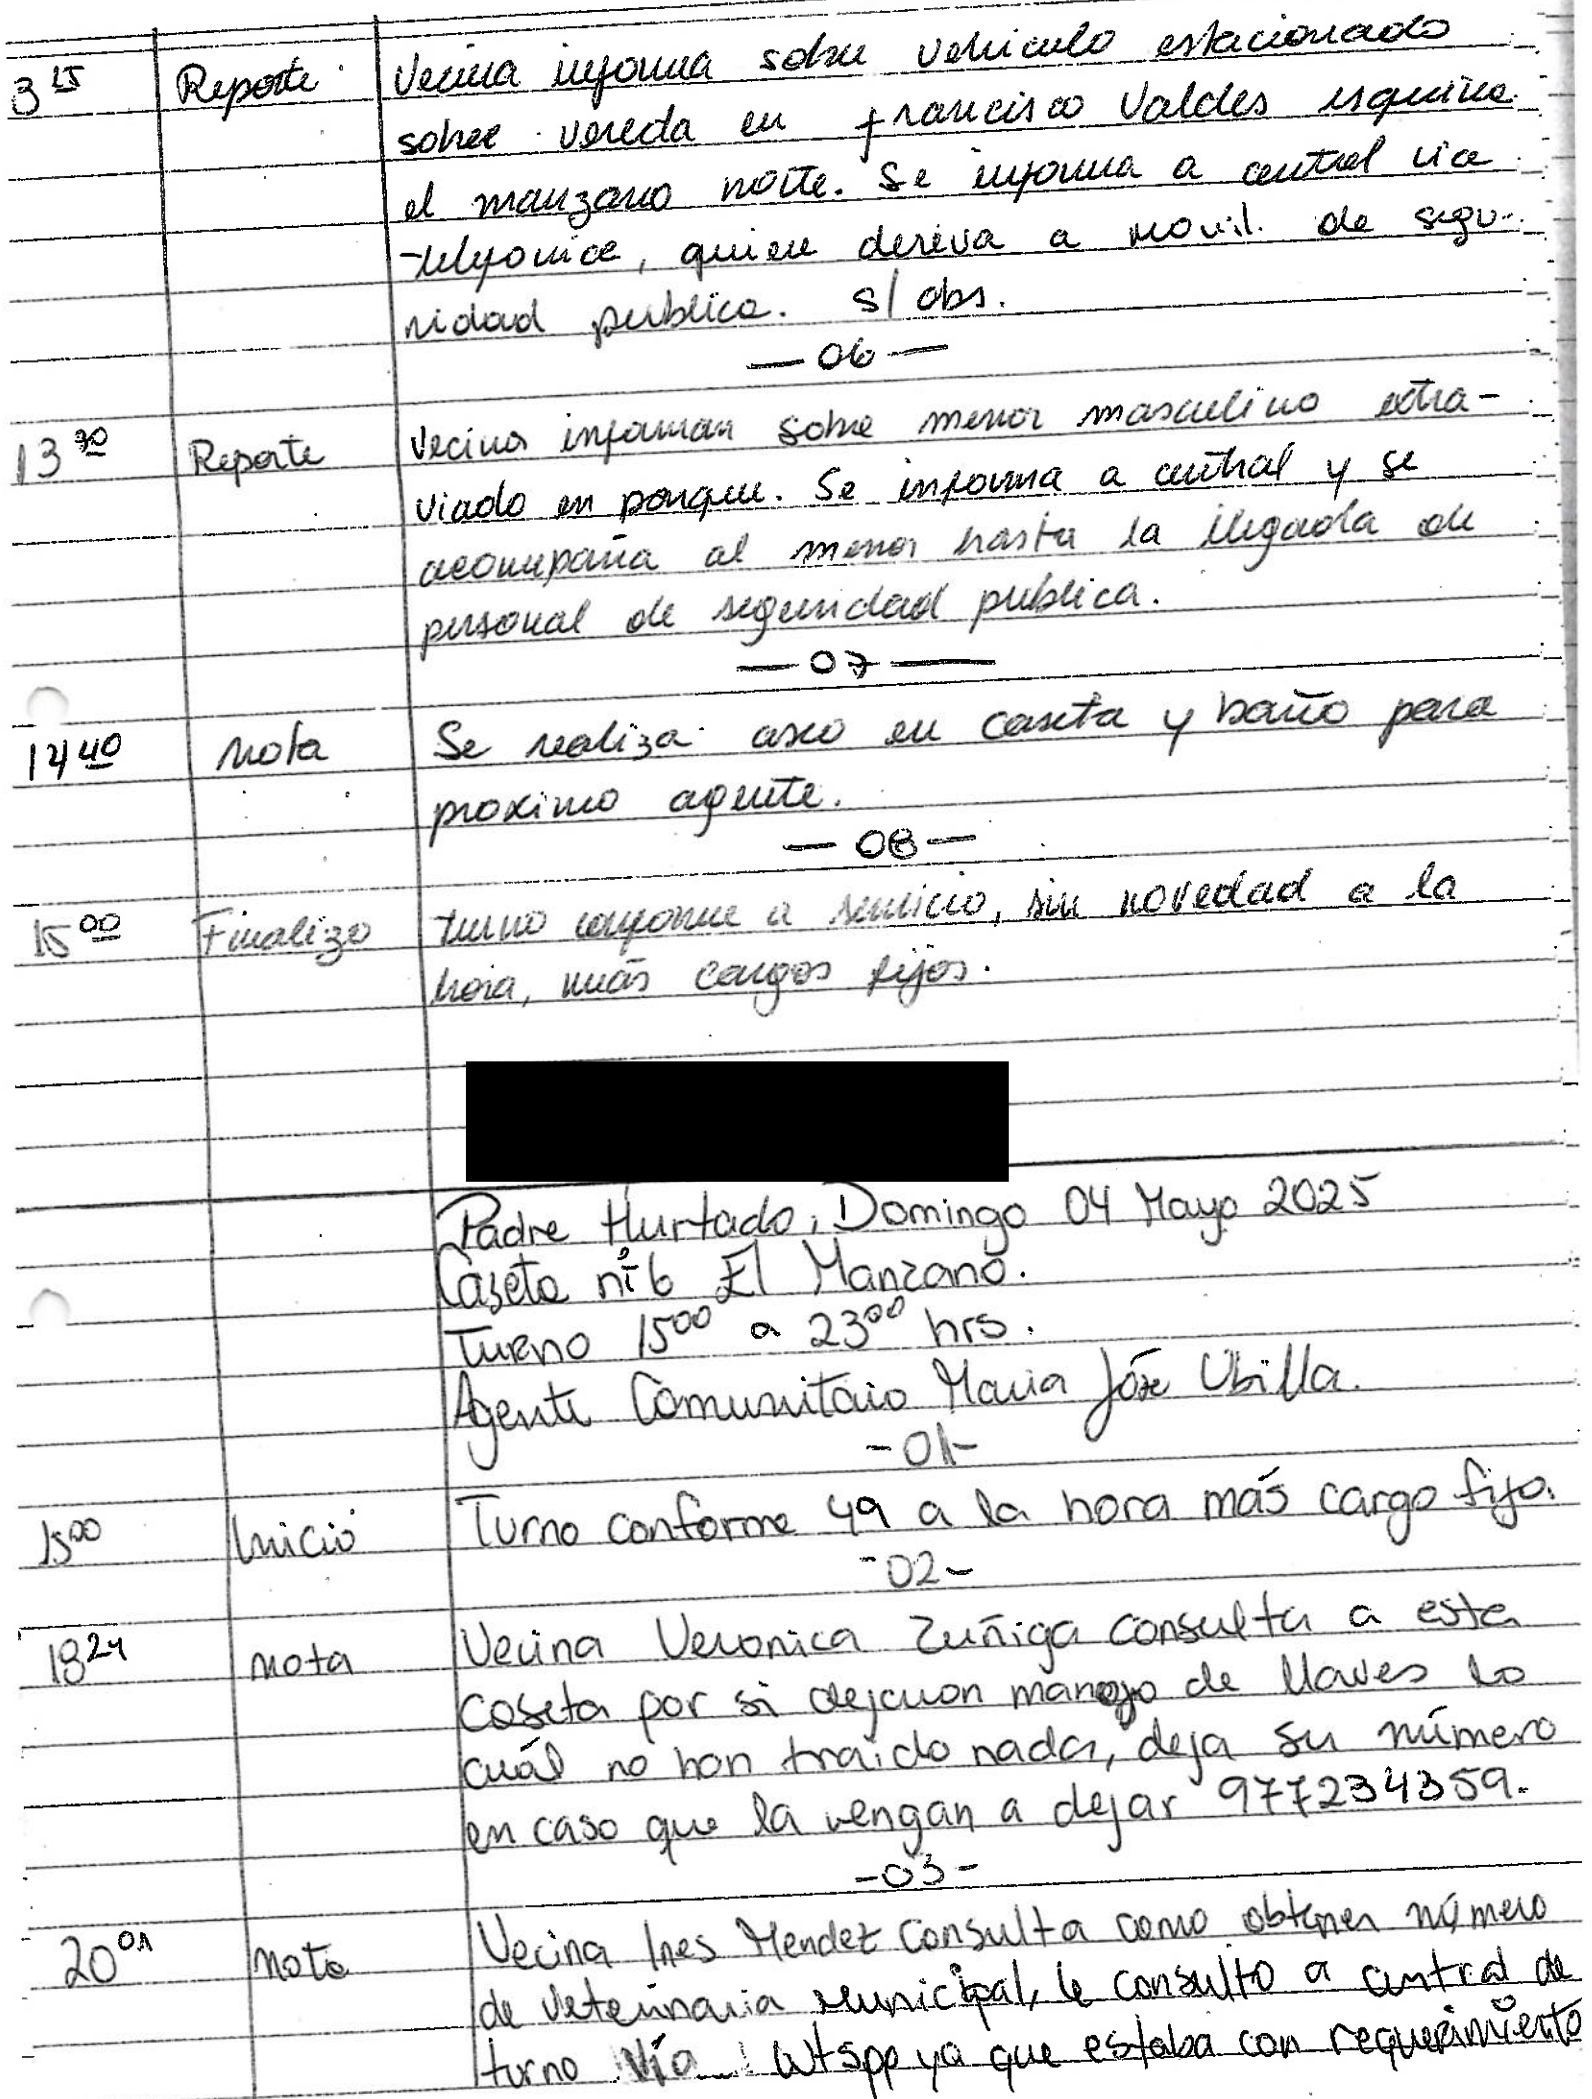 3 15 Reporte Vecina informa sobre vehiculo estacionado
sobre vereda en francisco Valdes esquina
el manzano norte. Se informa a central via
telefonica, quien deriva a movil de segu-
ridad publica. s/ obs.
— 06 —
13 30 Reporte Vecinos informan sobre menor masculino extra-
viado en parque. Se informa a central y se
acompaña al menor hasta la llegada de
personal de seguridad publica.
— 07 —
14 40 Nota Se realiza aseo en caseta y baño para
proximo agente.
— 08 —
15 00 Finalizo turno conforme a servicio, sin novedad a la
hora, más cargos fijos.
Padre Hurtado, Domingo 04 Mayo 2025
Caseta n°6 El Manzano.
Turno 15 00 a 23 00 hrs.
Agente Comunitaio Maria José Ubilla.
-01-
15 00 Inicio Turno conforme 49 a la hora más cargo fijo.
-02-
18 24 Nota Vecina Veronica Zuñiga consulta a esta
caseta por si dejaron manojo de llaves lo
cuál no han traido nada, deja su número
en caso que la vengan a dejar 977234359.
-03-
20 01 Nota Vecina Ines Mendez consulta como obtener número
de Veterinaria municipal, le consulto a central de
turno Vía Wtspp ya que estaba con requerimiento